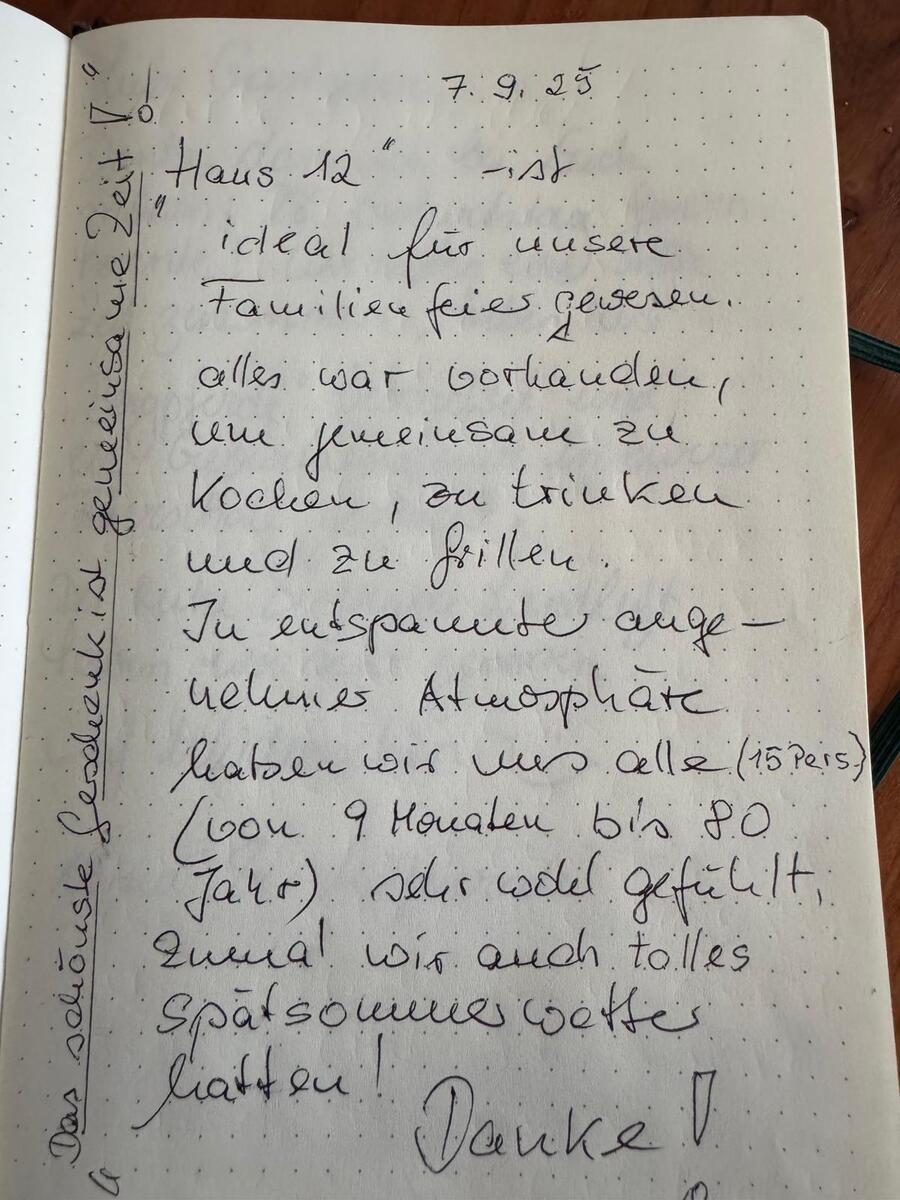 7. 9. 25
"Haus 12" - ist
ideal für unsere
Familienfeier gewesen.
alles war vorhanden,
um gemeinsam zu
Kochen, zu trinken
und zu Grillen.
In entspannter ange-
nehmer Atmosphäre
haben wir uns alle (15 Pers)
(von 9 Monaten bis 80
Jahr) sehr wohl gefühlt,
zumal wir auch tolles
Spätsommerwetter
hatten!
Danke!
"Das schönste Geschenk ist gemeinsame Zeit!"